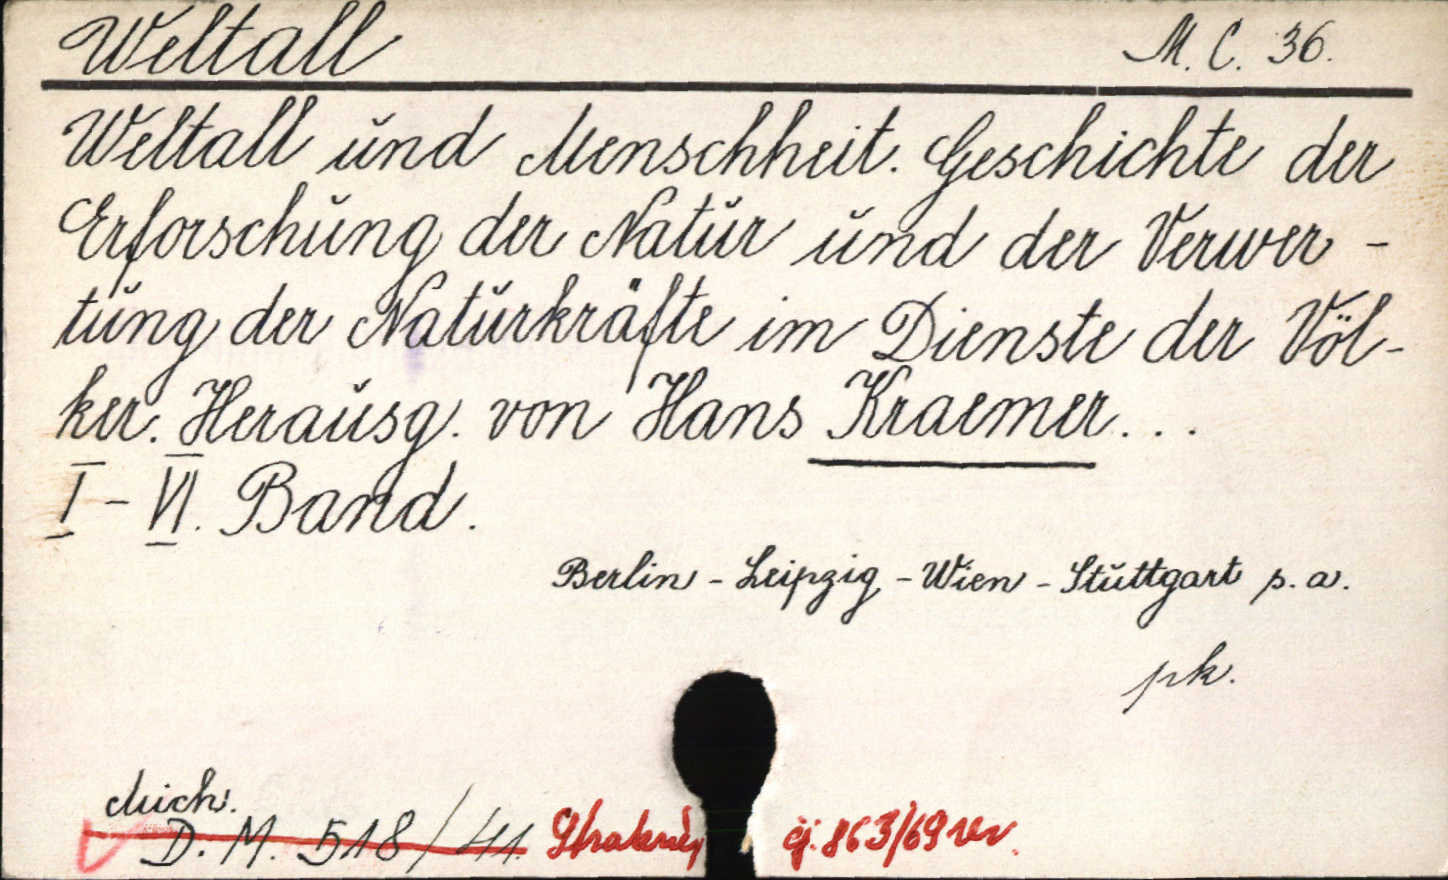 Weltall M. C. 36.
Weltall und Menschheit. Geschichte der
Erforschung der Natur und der Verwer-
tung der Naturkräfte im Dienste der Völ-
ker. Herausg. von Hans Kraemer...
I - VI. Band.
Berlin - Leipzig - Wien - Stuttgart s. a.
pk.
Mich.
D. M. 518/41. čj. 863/69